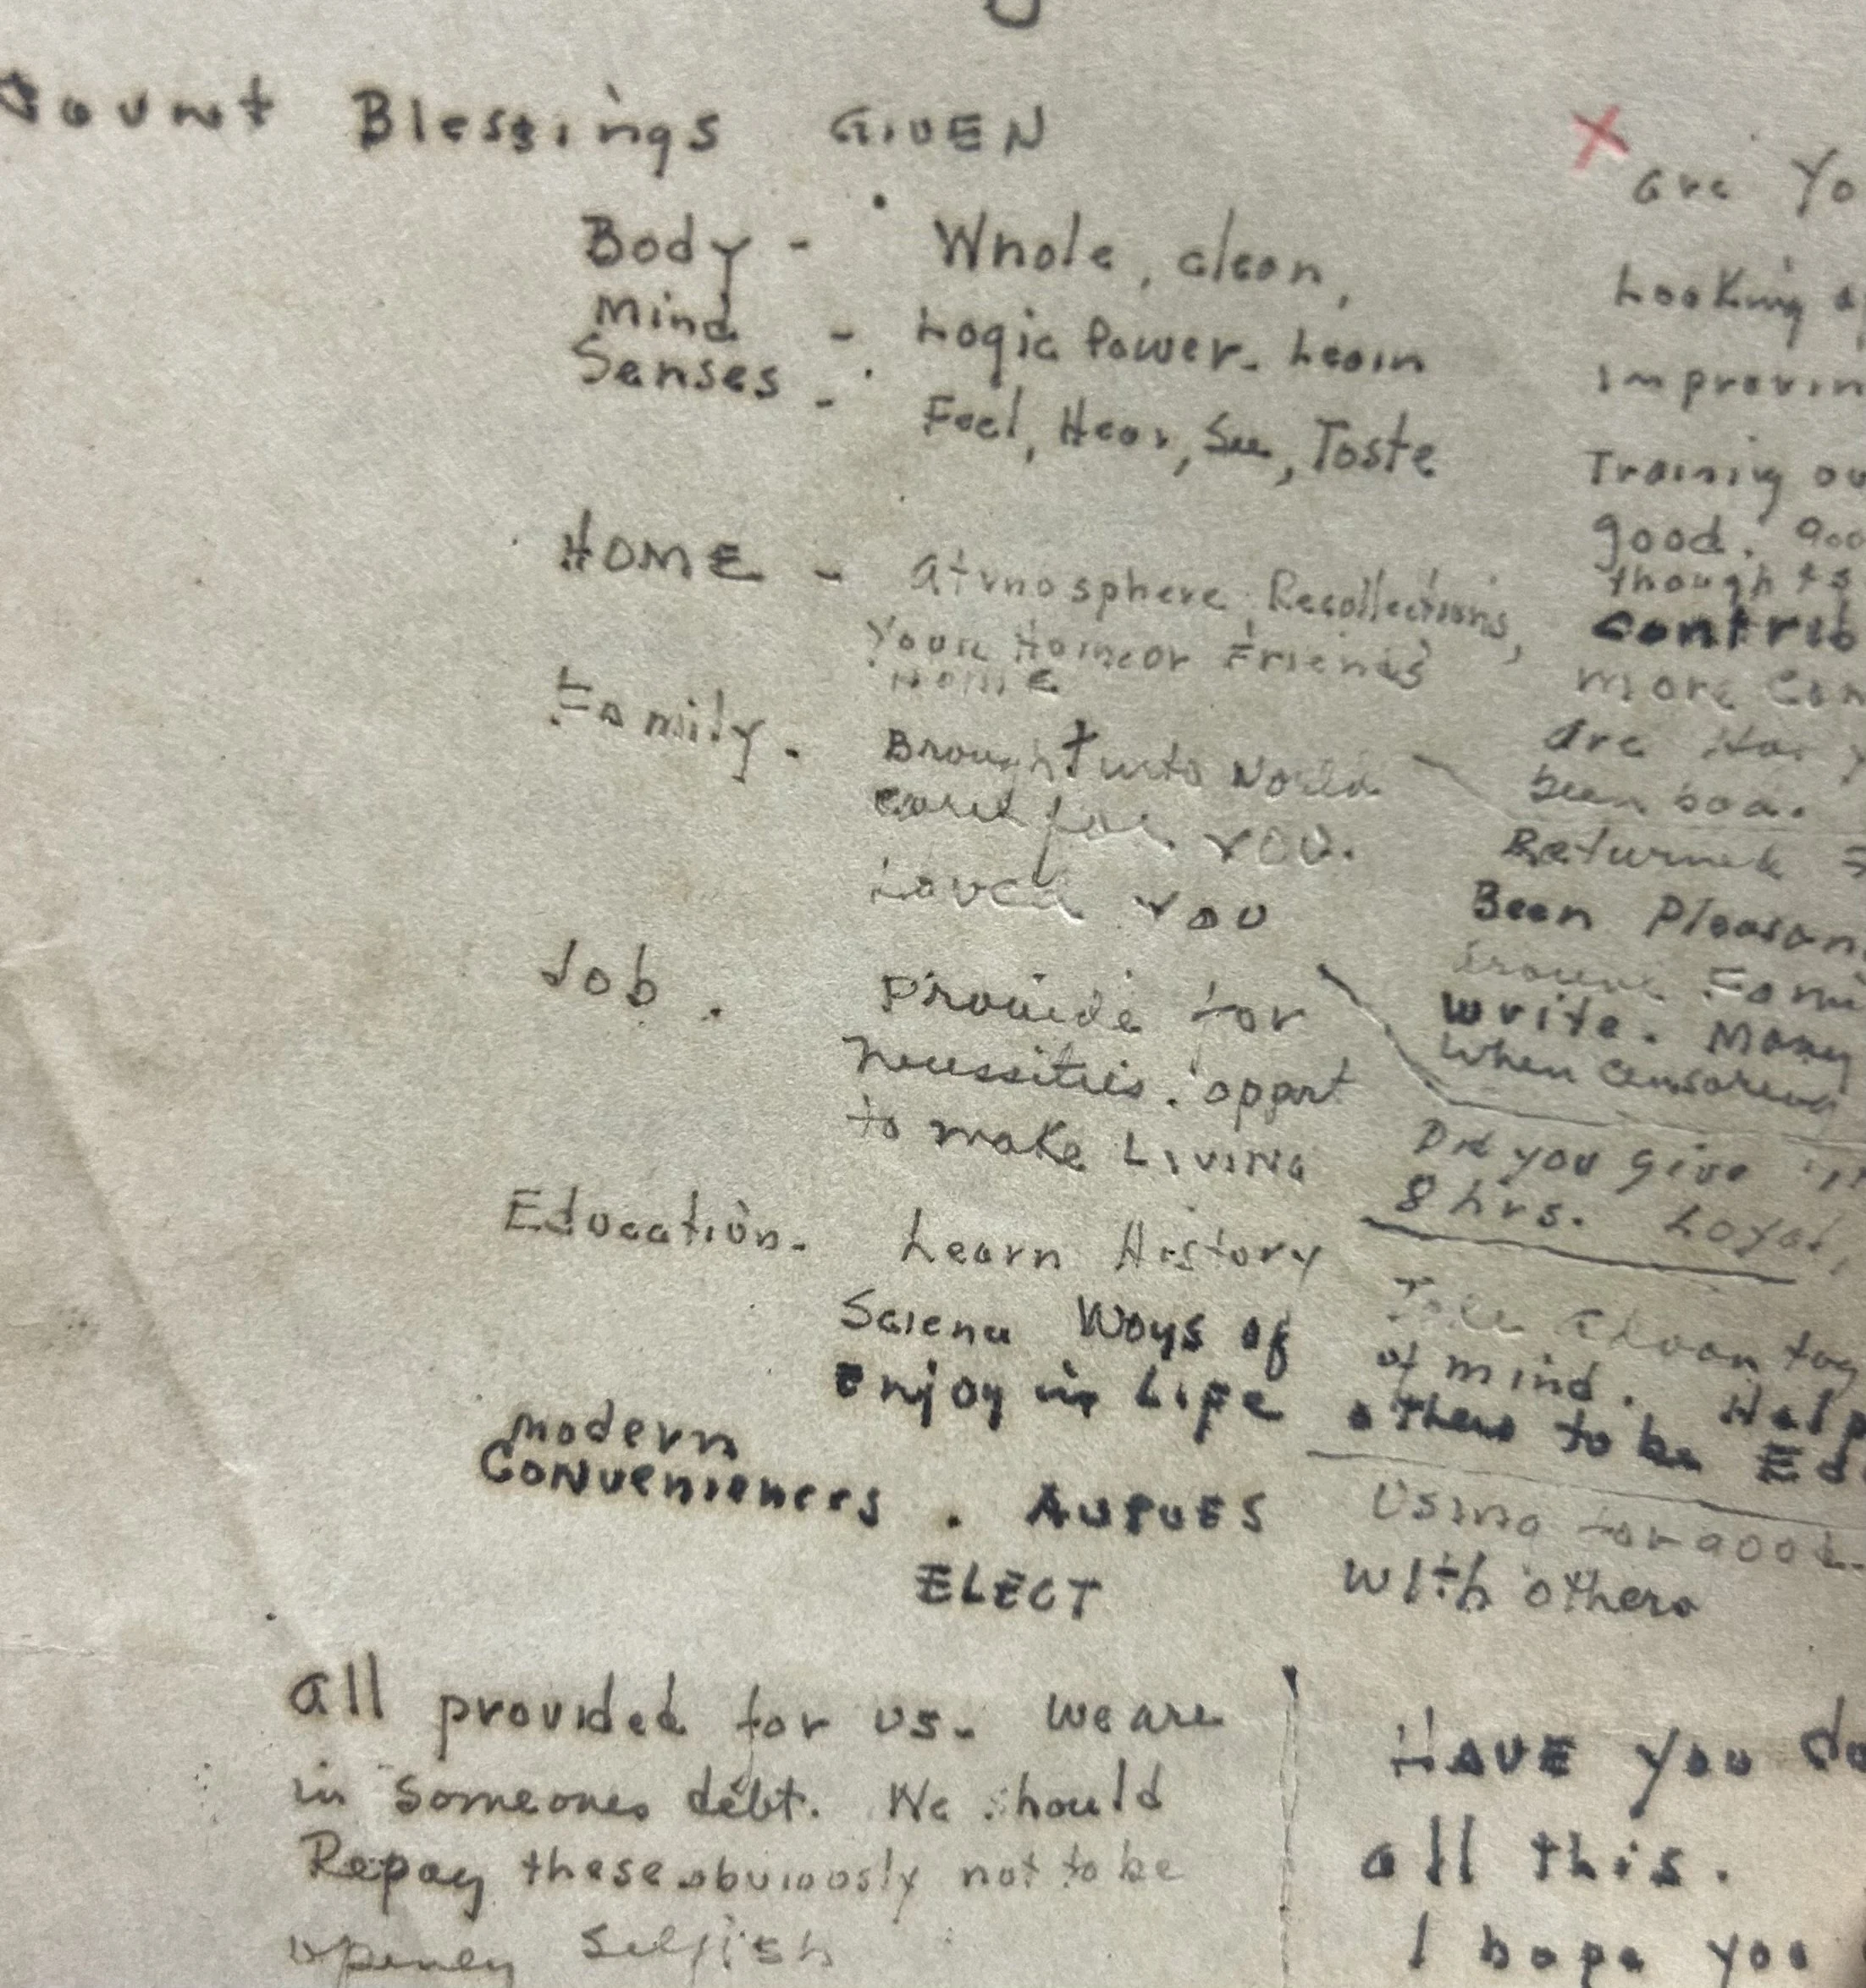 Count Blessings GIVEN
Body - Whole, clean,
Mind - Logic Power. Learn
Senses - Feel, Hear, See, Taste
HOME - Atmosphere, Recollections,
Your Home or Friends
Home
Family. Brought into World
care for YOU.
Loved YOU
Job. Provide for
Necessities. opport
to make Living
Education. Learn History
Science Ways of
Enjoy in Life
Modern
Conveniences.
ELECT
All provided for us. We are
in someones debt. We should
Repay these obviously not to be
selfish
X Are Yo
Looking
improvin
Training ou
good. goo
thoughts
contrib
more Con
Are
been
Returned
Been Pleasan
Fami
write. Many
When censoring
Did you give
8 hrs. Loyal,
Take Advantag
of mind. Help
others to be Ed
Using for good.
with others
HAVE you do
all this.
I hope you